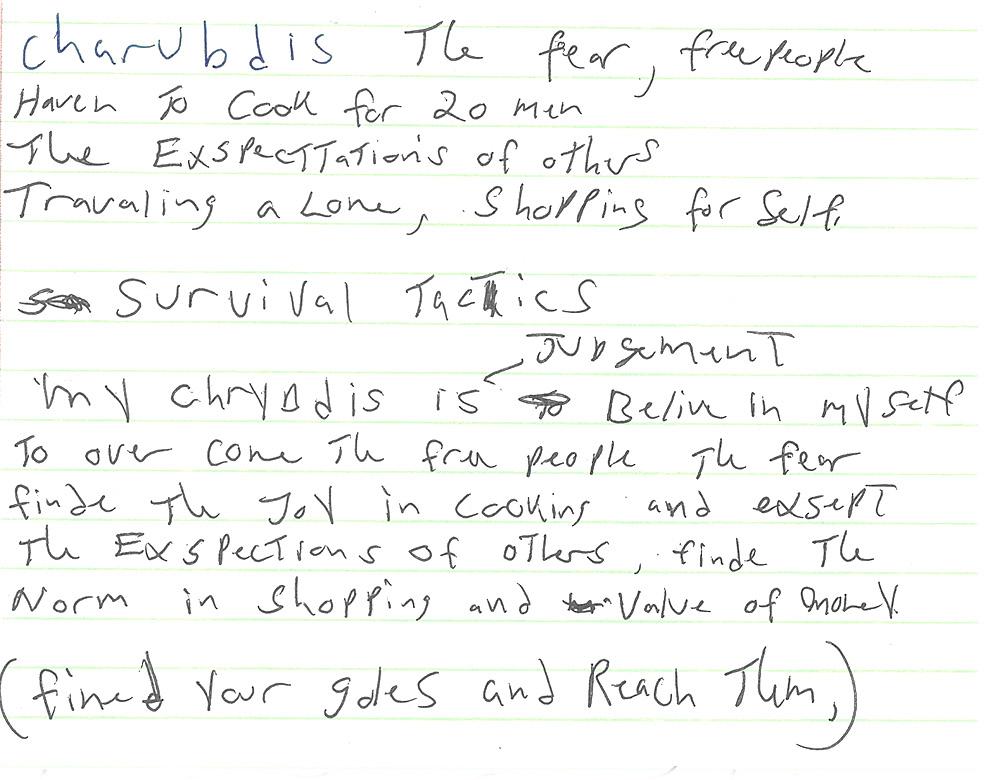 Charubdis The fear, free people
Haven To Cook for 20 men
The Exspecttations of others
Travaling a Lone, Shopping for Self.
Survival Tactics
Judgement
my chrybdis is Belive in myself
To over come The free people The fear
finde The Joy in cooking and exsept
The Exspections of others, finde The
Norm in Shopping and Value of money.
(fined Your goles and Reach Them,)